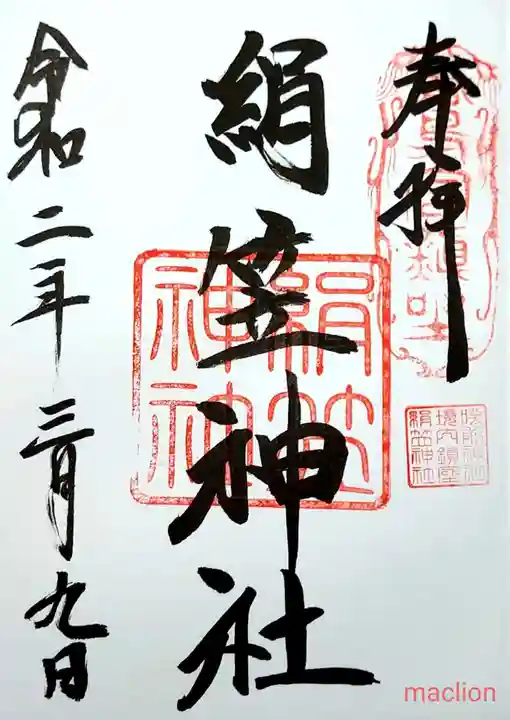 奉拝
絹笠神社
令和二年三月九日
絹笠
神社
境内鎮座
絹笠神社
maclion